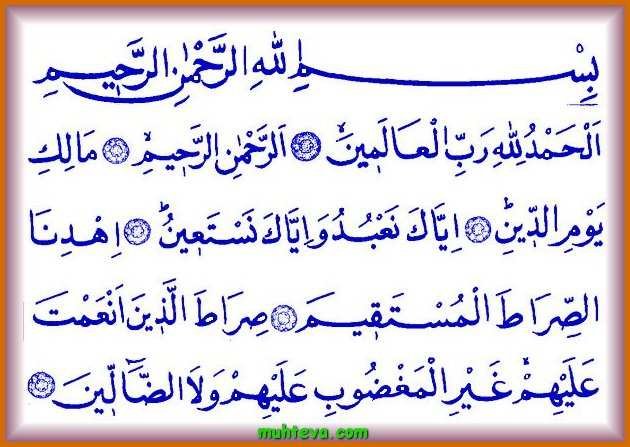 بِسْمِ اللهِ الرَّحْمٰنِ الرَّحٖيمِ
اَلْحَمْدُ لِلّٰهِ رَبِّ الْعَالَمٖينَۙ ۝ اَلرَّحْمٰنِ الرَّحٖيمِۙ ۝ مَالِكِ
يَوْمِ الدّٖينِۜ ۝ اِيَّاكَ نَعْبُدُ وَاِيَّاكَ نَسْتَعٖينُۜ ۝ اِهْدِنَا
الصِّرَاطَ الْمُسْتَقٖيمَ ۝ صِرَاطَ الَّذٖينَ اَنْعَمْتَ
عَلَيْهِمْۙ غَيْرِ الْمَغْضُوبِ عَلَيْهِمْ وَلَا الضَّٓالّٖينَ ۝
muhteva.com